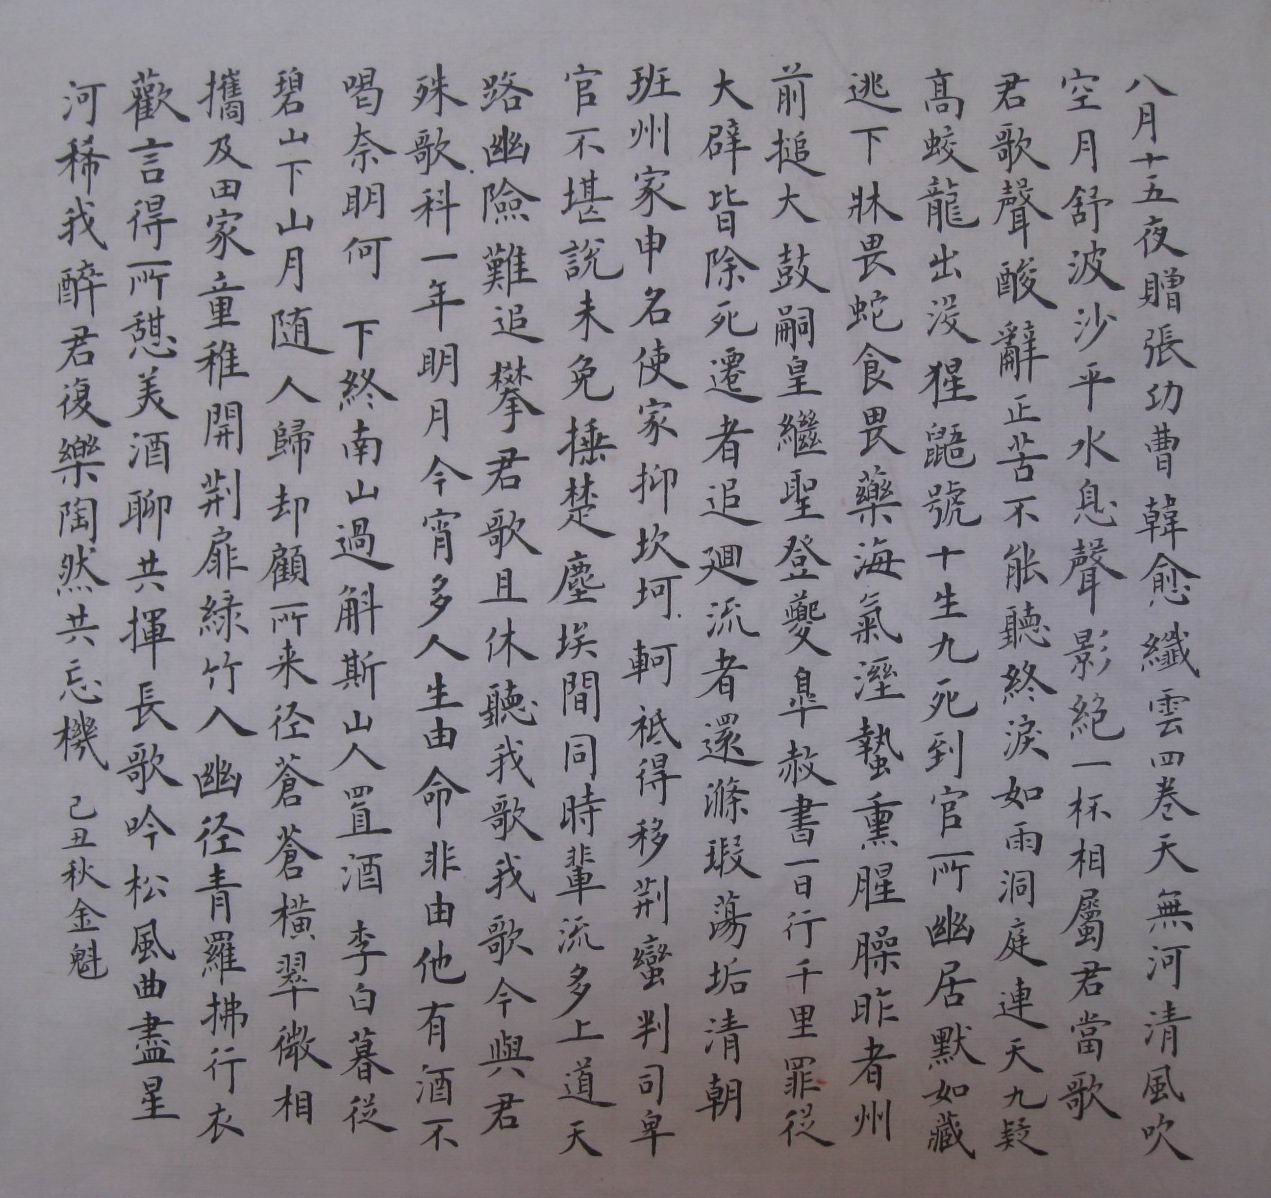 八月十五夜贈張功曹韓愈纖雲四卷天無河清風吹
空月舒波沙平水息聲影絕一杯相屬君當歌
君歌聲酸辭正苦不能聽終淚如雨洞庭連天九疑
高蛟龍出沒猩鼯號十生九死到官所幽居默如藏
逃下牀畏蛇食畏藥海氣溼蟄熏腥臊昨者州
前搥大鼓嗣皇繼聖登夔皐赦書一日行千里罪從
大辟皆除死遷者追廻流者還滌瑕蕩垢清朝
班州家申名使家抑坎坷軻祗得移荆蠻判司卑
官不堪說未免捶楚塵埃間同時輩流多上道天
路幽險難追攀君歌且休聽我歌我歌今與君
殊歌科一年明月今宵多人生由命非由他有酒不
喝奈明何 下終南山過斛斯山人置酒 李白暮從
碧山下山月随人歸却顧所来径蒼蒼橫翠微相
攜及田家童稚開荆扉緑竹入幽径青羅拂行衣
歡言得所憩美酒聊共揮長歌吟松風曲盡星
河稀我醉君復樂陶然共忘機 己丑秋金魁